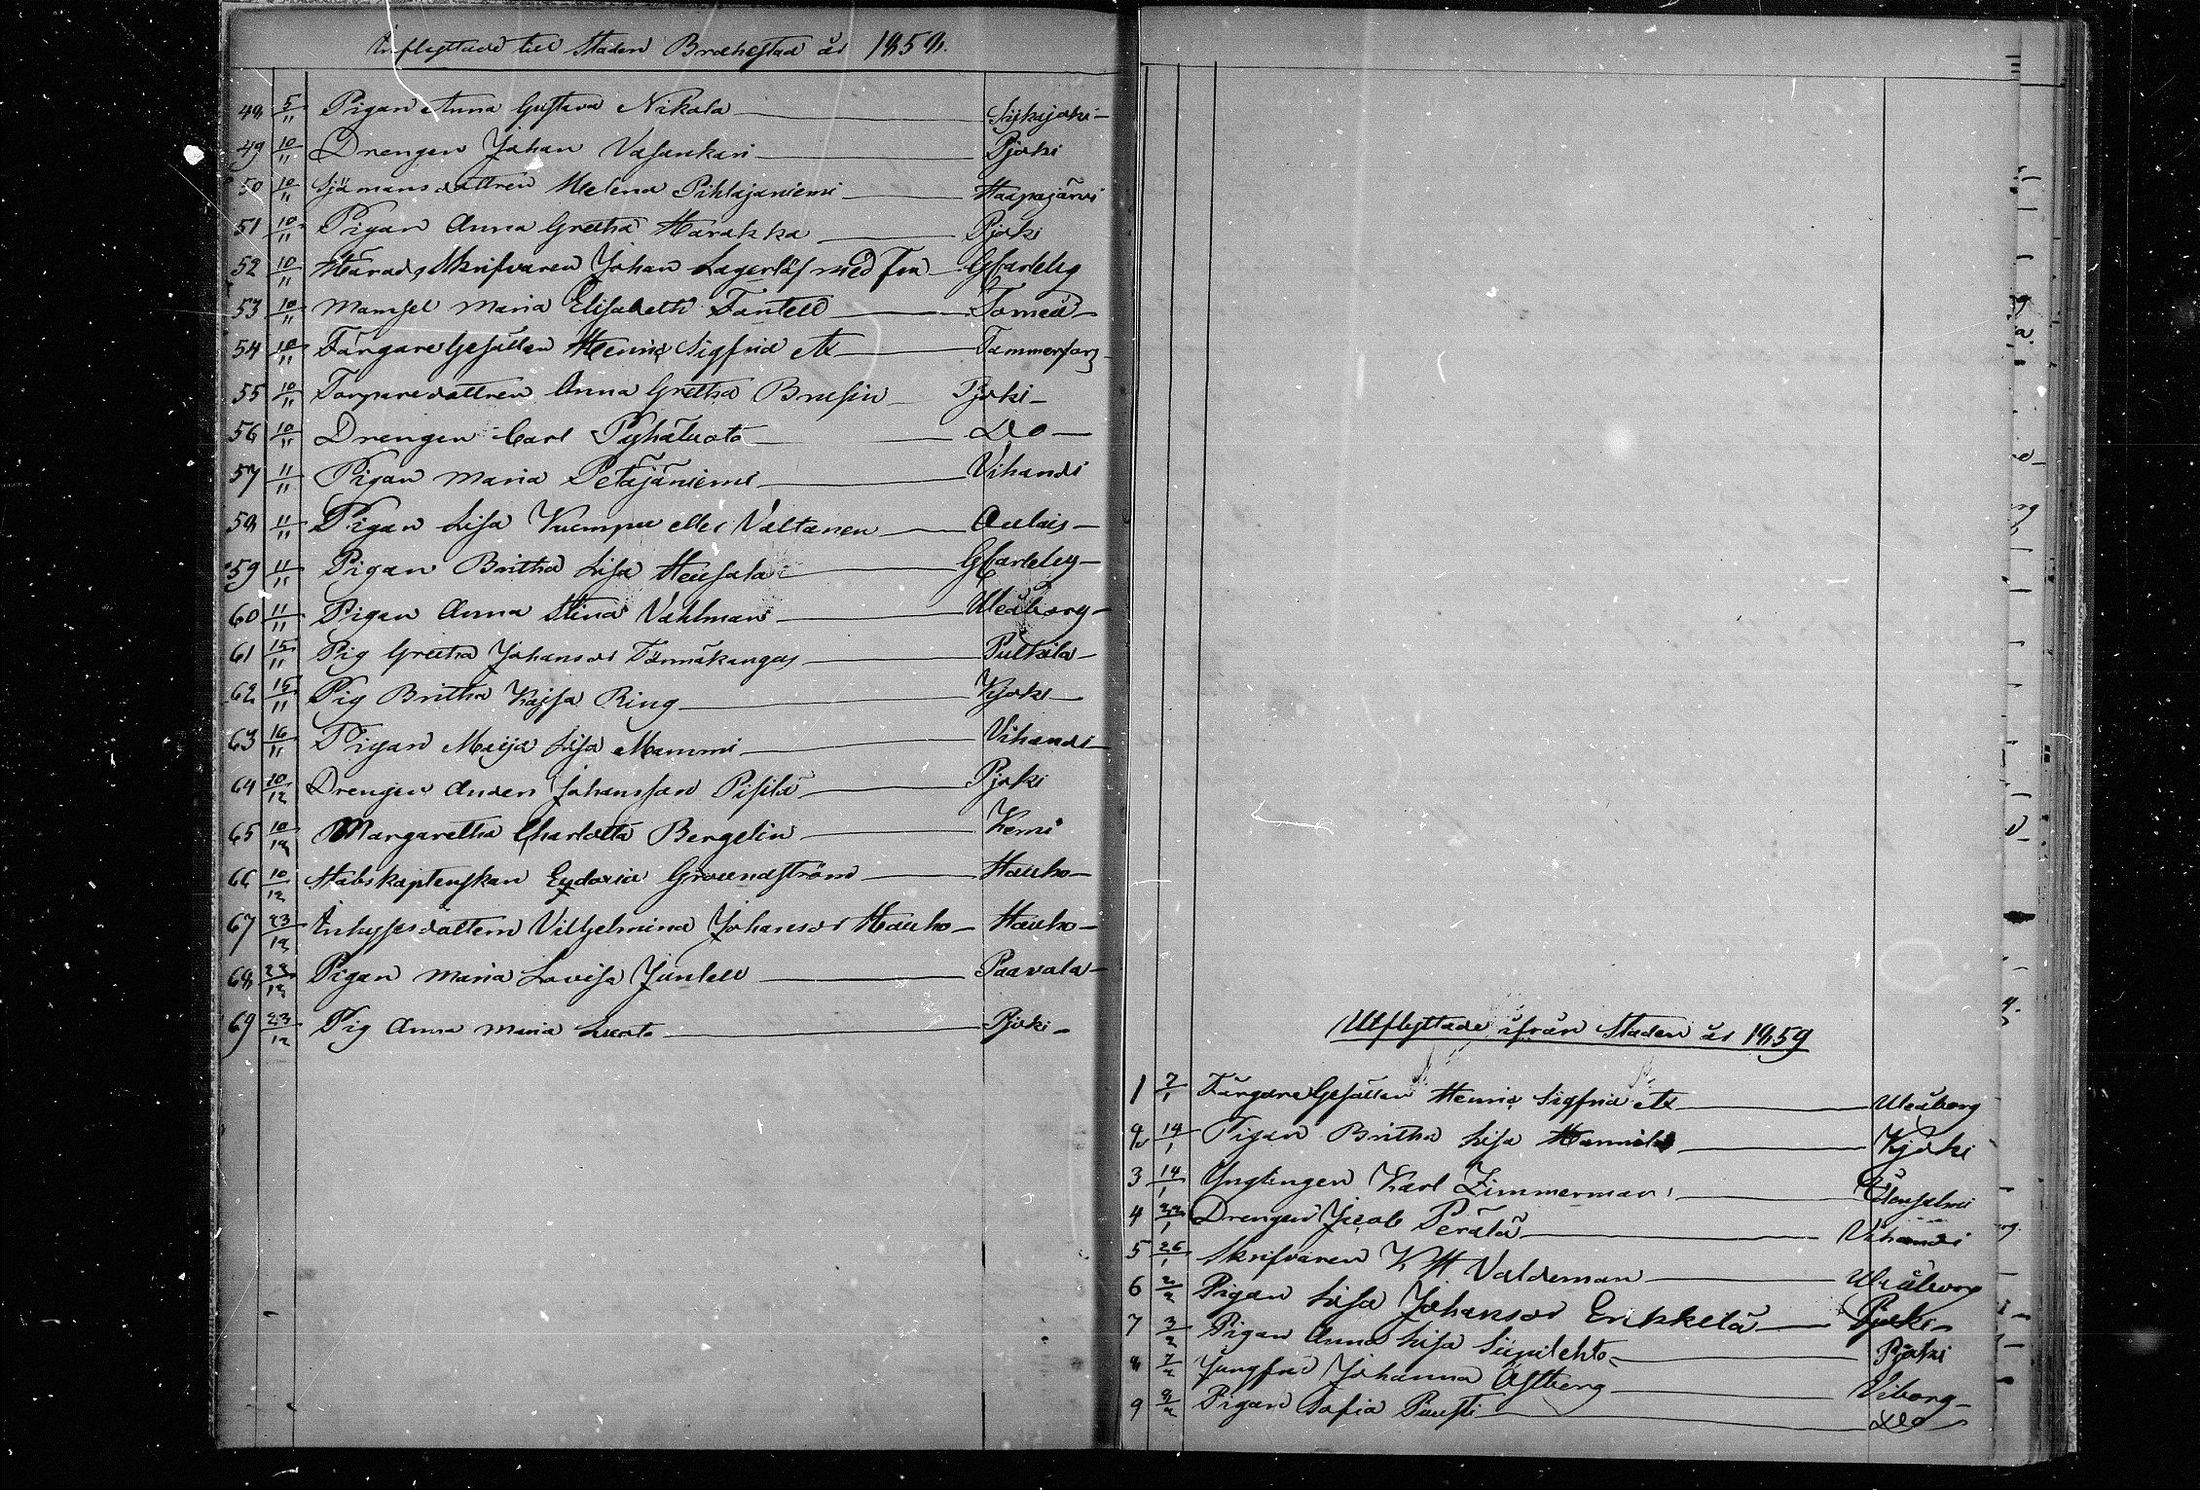 Inflyttade till Staden Brahestad år 1858.
48 5/11 Pigan Anna Gustava Nikola Siikajoki
49 10/11 Drengen Johan Vasankari Pjoki
50 10/11 Sjömansdottren Helena Pihlajaniemi Haapajärvi
51 10/11 Pigan Anna Gretha Harakka Pjoki
52 10/11 Härads Skrifvaren Johan Lagerlöf med Fru GCarleby
53 10/11 Mamsel Maria Elisabeth Fontell Torneå
54 10/11 Färgare Gesällen Henric Sigfrid Ax Tammerfors
55 10/11 Torparedottren Anna Gretha Brusin Pjoki
56 10/11 Drengen Carl Pyhäluoto Do
57 11/11 Pigan Maria Petäjäniemi Vihandi
58 11/11 Pigan Lisa Kuempu eller Valtanen Oulais
59 11/11 Pigan Britha Lisa Heusala GCarleby
60 11/11 Pigan Anna Stina Vahlman Uleåborg
61 15/11 Pig Gretha Johansdr Törmäkangas Pulkila
62 15/11 Pig Britha Kajsa Ring Kjoki
63 16/11 Pigan Maija Lisa Mammi Vihandi
64 10/12 Drengen Anders Johansson Pisilä Pjoki
65 10/12 Margaretha Charlotta Bergelin Kemi
66 10/12 Stabskaptenskan Eudoxia Groundström Hauho
67 23/12 Inhysesdottern Vilhelmina Johansdr Hauho Hauho
68 23/12 Pigan Maria Lovisa Juntell Paavola
69 23/12 Pig Anna Maria Luoto Pjoki
Utflyttade ifrån Staden år 1859
1 7/1 Färgare Gesällen Henric Sigfrid Ax Uleåborg
2 14/1 Pigan Britha Lisa Hannila Kjoki
3 14/1 Ynglingen Karl Zimmerman Idensalmi
4 22/1 Drengen Jacob Perälä Vihandi
5 26/1 Skrifvaren K H Valdeman Uleåborg
6 2/2 Pigan Lisa Johansdr Erikkelä Pjoki
7 3/2 Pigan Anna Lisa Siipilehto Pjoki
8 7/2 Jungfru Johanna Östberg Viborg
9 8/2 Pigan Sofia Puusti Do